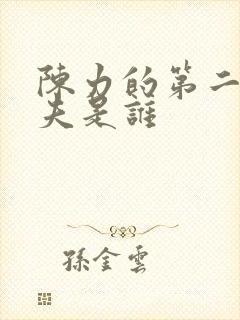 陳力的第二
夫是誰
孫金雲